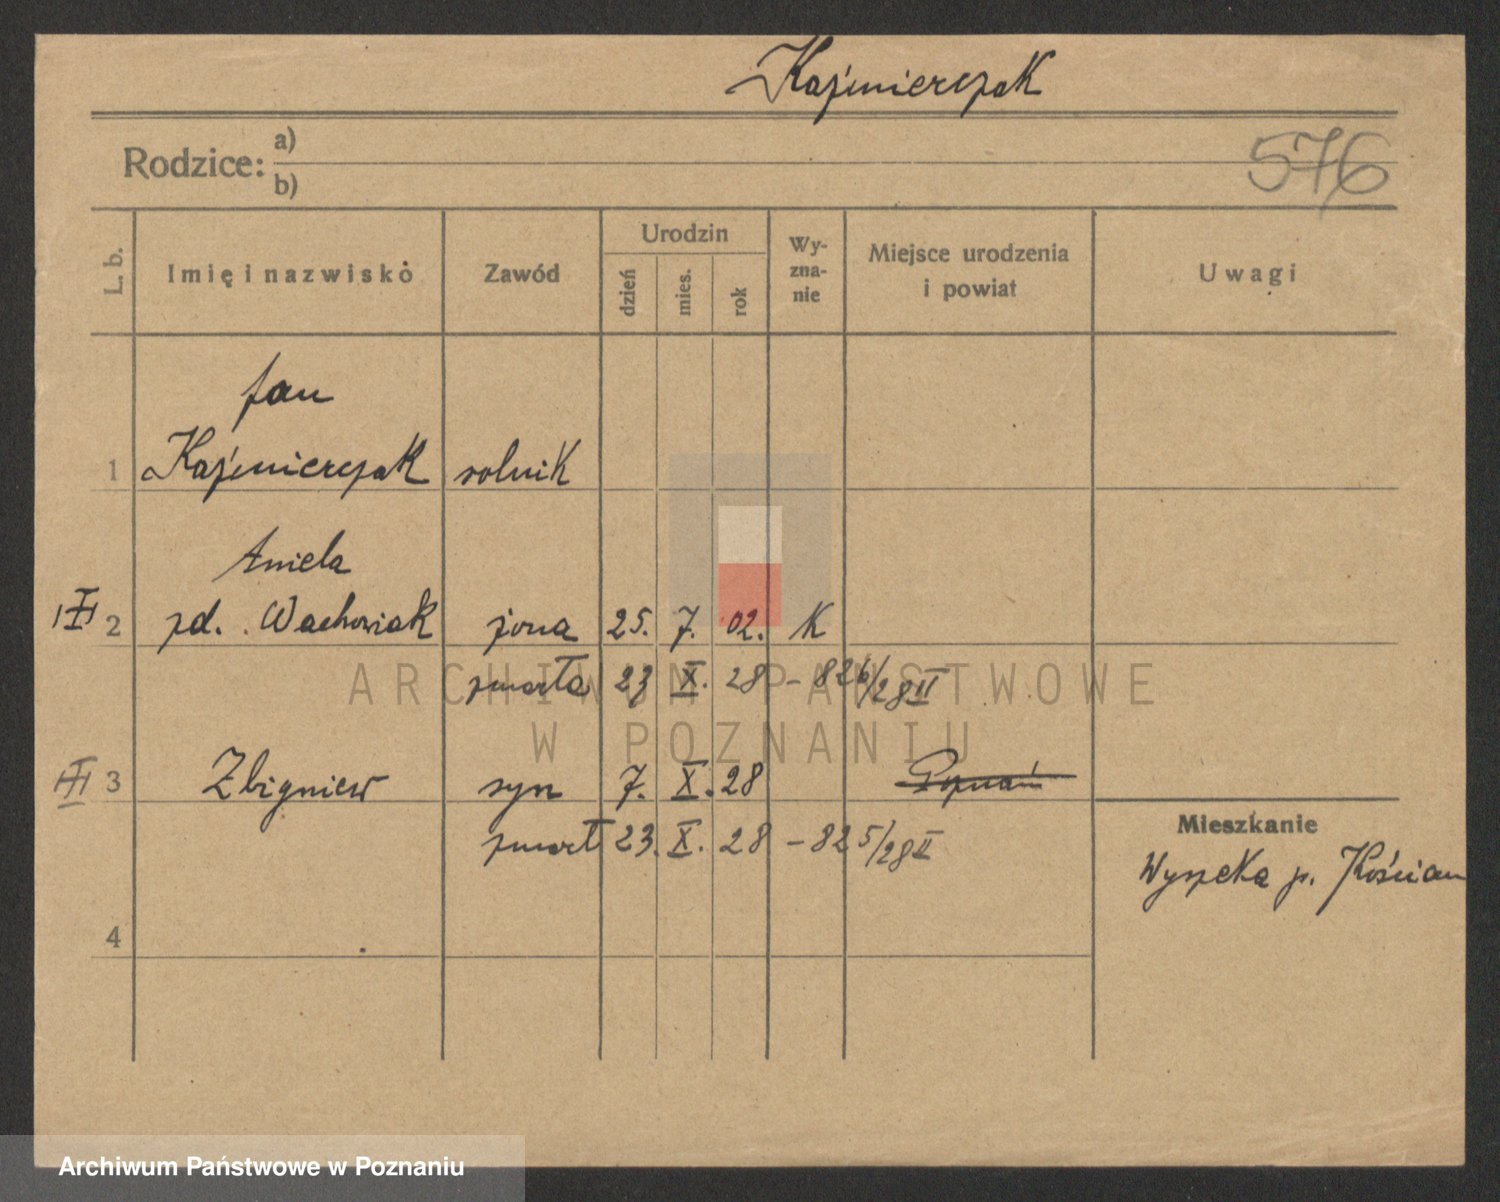 Kaźmierczak
576
Rodzice: a)
b)
L. b.
Imię i nazwisko
Zawód
Urodzin
dzień
mies.
rok
Wy-
zna-
nie
Miejsce urodzenia
i powiat
Uwagi
Jan
1 Kaźmierczak rolnik
Aniela
III 2 zd. Wachowiak żona 25. 7. 02. K
zmarła 23 X. 28 - 826/28 II
III 3 Zbigniew syn 7. X. 28 Poznań
zmarł 23. X. 28 - 825/28 II
4
Mieszkanie
Wyszka p. Kościan
ARCHIWUM PAŃSTWOWE
W POZNANIU
Archiwum Państwowe w Poznaniu